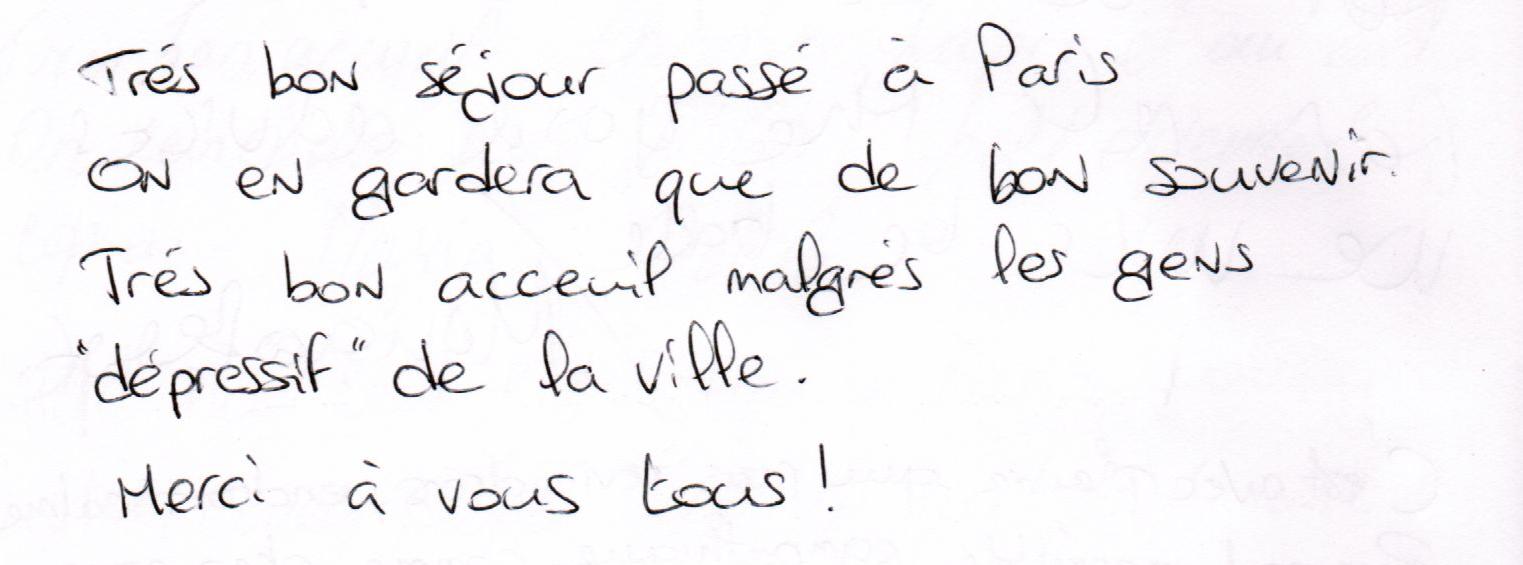 Trés bon séjour passé à Paris
On en gardera que de bon souvenir.
Trés bon acceuil malgrés les gens
"dépressif" de la ville.
Merci à vous tous !